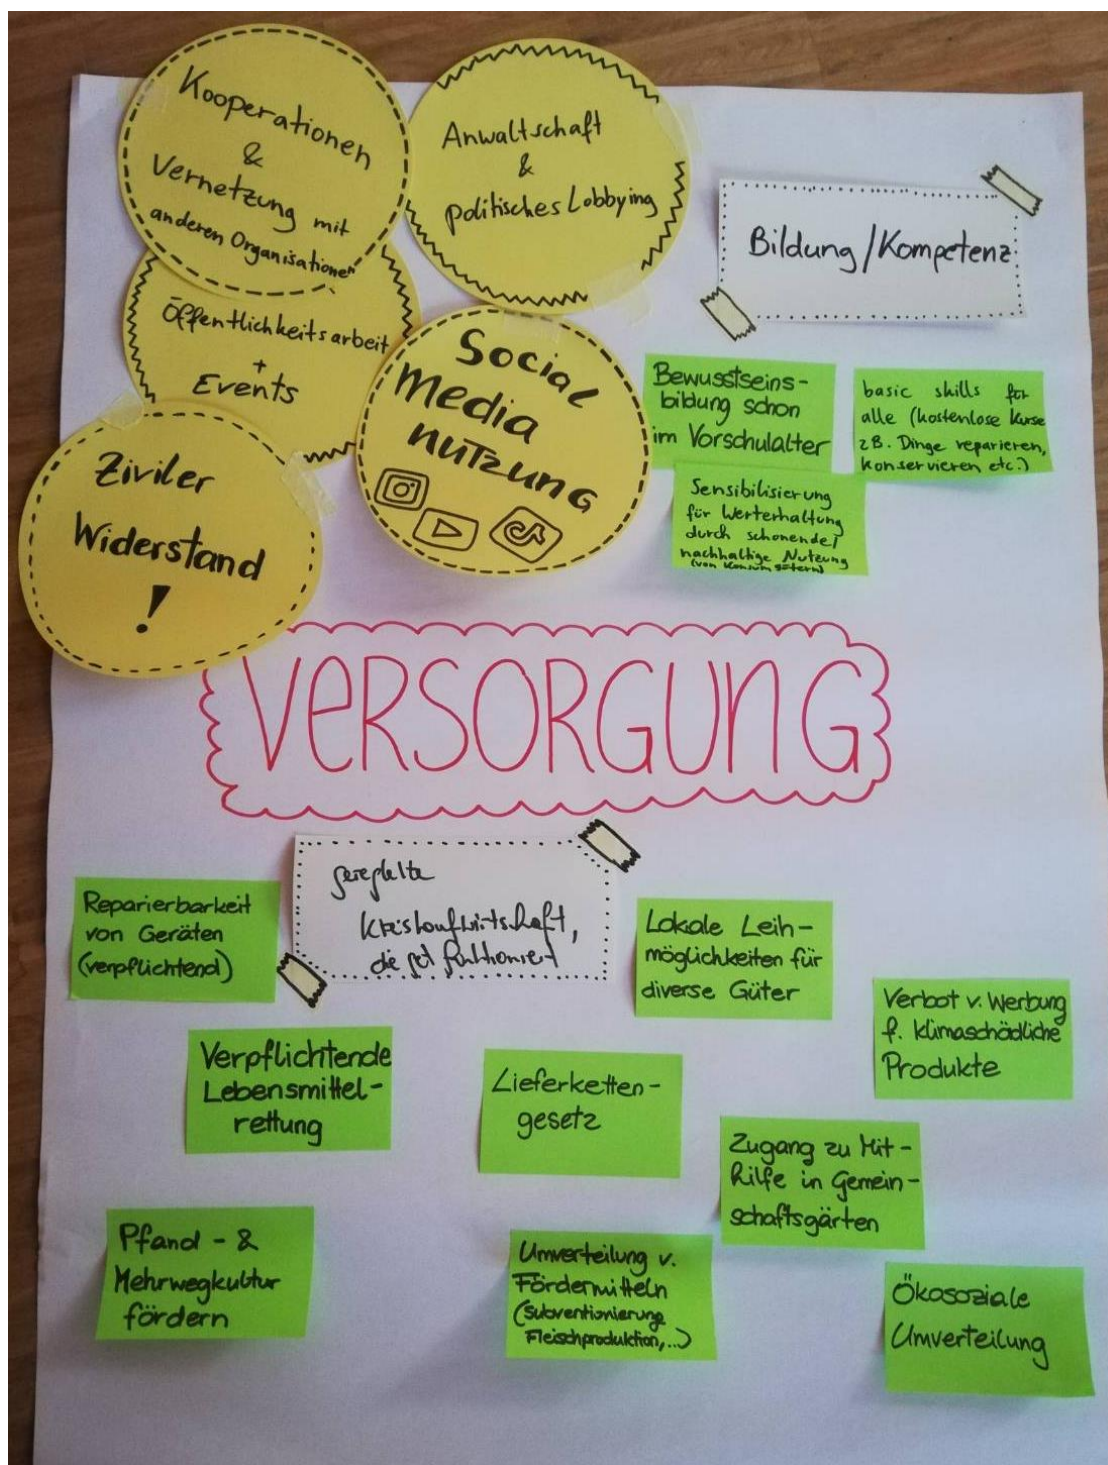 Kooperationen
&
Vernetzung mit
anderen Organisationen
Anwaltschaft
&
politisches Lobbying
Öffentlichkeitsarbeit
+
Events
Social
Media
nutzung
Ziviler
Widerstand
!
Bildung/Kompetenz
Bewusstseins-
bildung schon
im Vorschulalter
basic skills für
alle (kostenlose Kurse
zB. Dinge reparieren,
konservieren etc.)
Sensibilisierung
für Werterhaltung
durch schonende/
nachhaltige Nutzung
(von Konsumgütern)
VERSORGUNG
geregelte
Kreislaufwirtschaft,
die gut funktioniert
Reparierbarkeit
von Geräten
(verpflichtend)
Lokale Leih-
möglichkeiten für
diverse Güter
Verbot v. Werbung
f. klimaschädliche
Produkte
Verpflichtende
Lebensmittel-
rettung
Lieferketten-
gesetz
Zugang zu Mit-
hilfe in Gemein-
schaftsgärten
Pfand- &
Mehrwegkultur
fördern
Umverteilung v.
Fördermitteln
(Subventionierung
Fleischproduktion,...)
Ökosoziale
Umverteilung